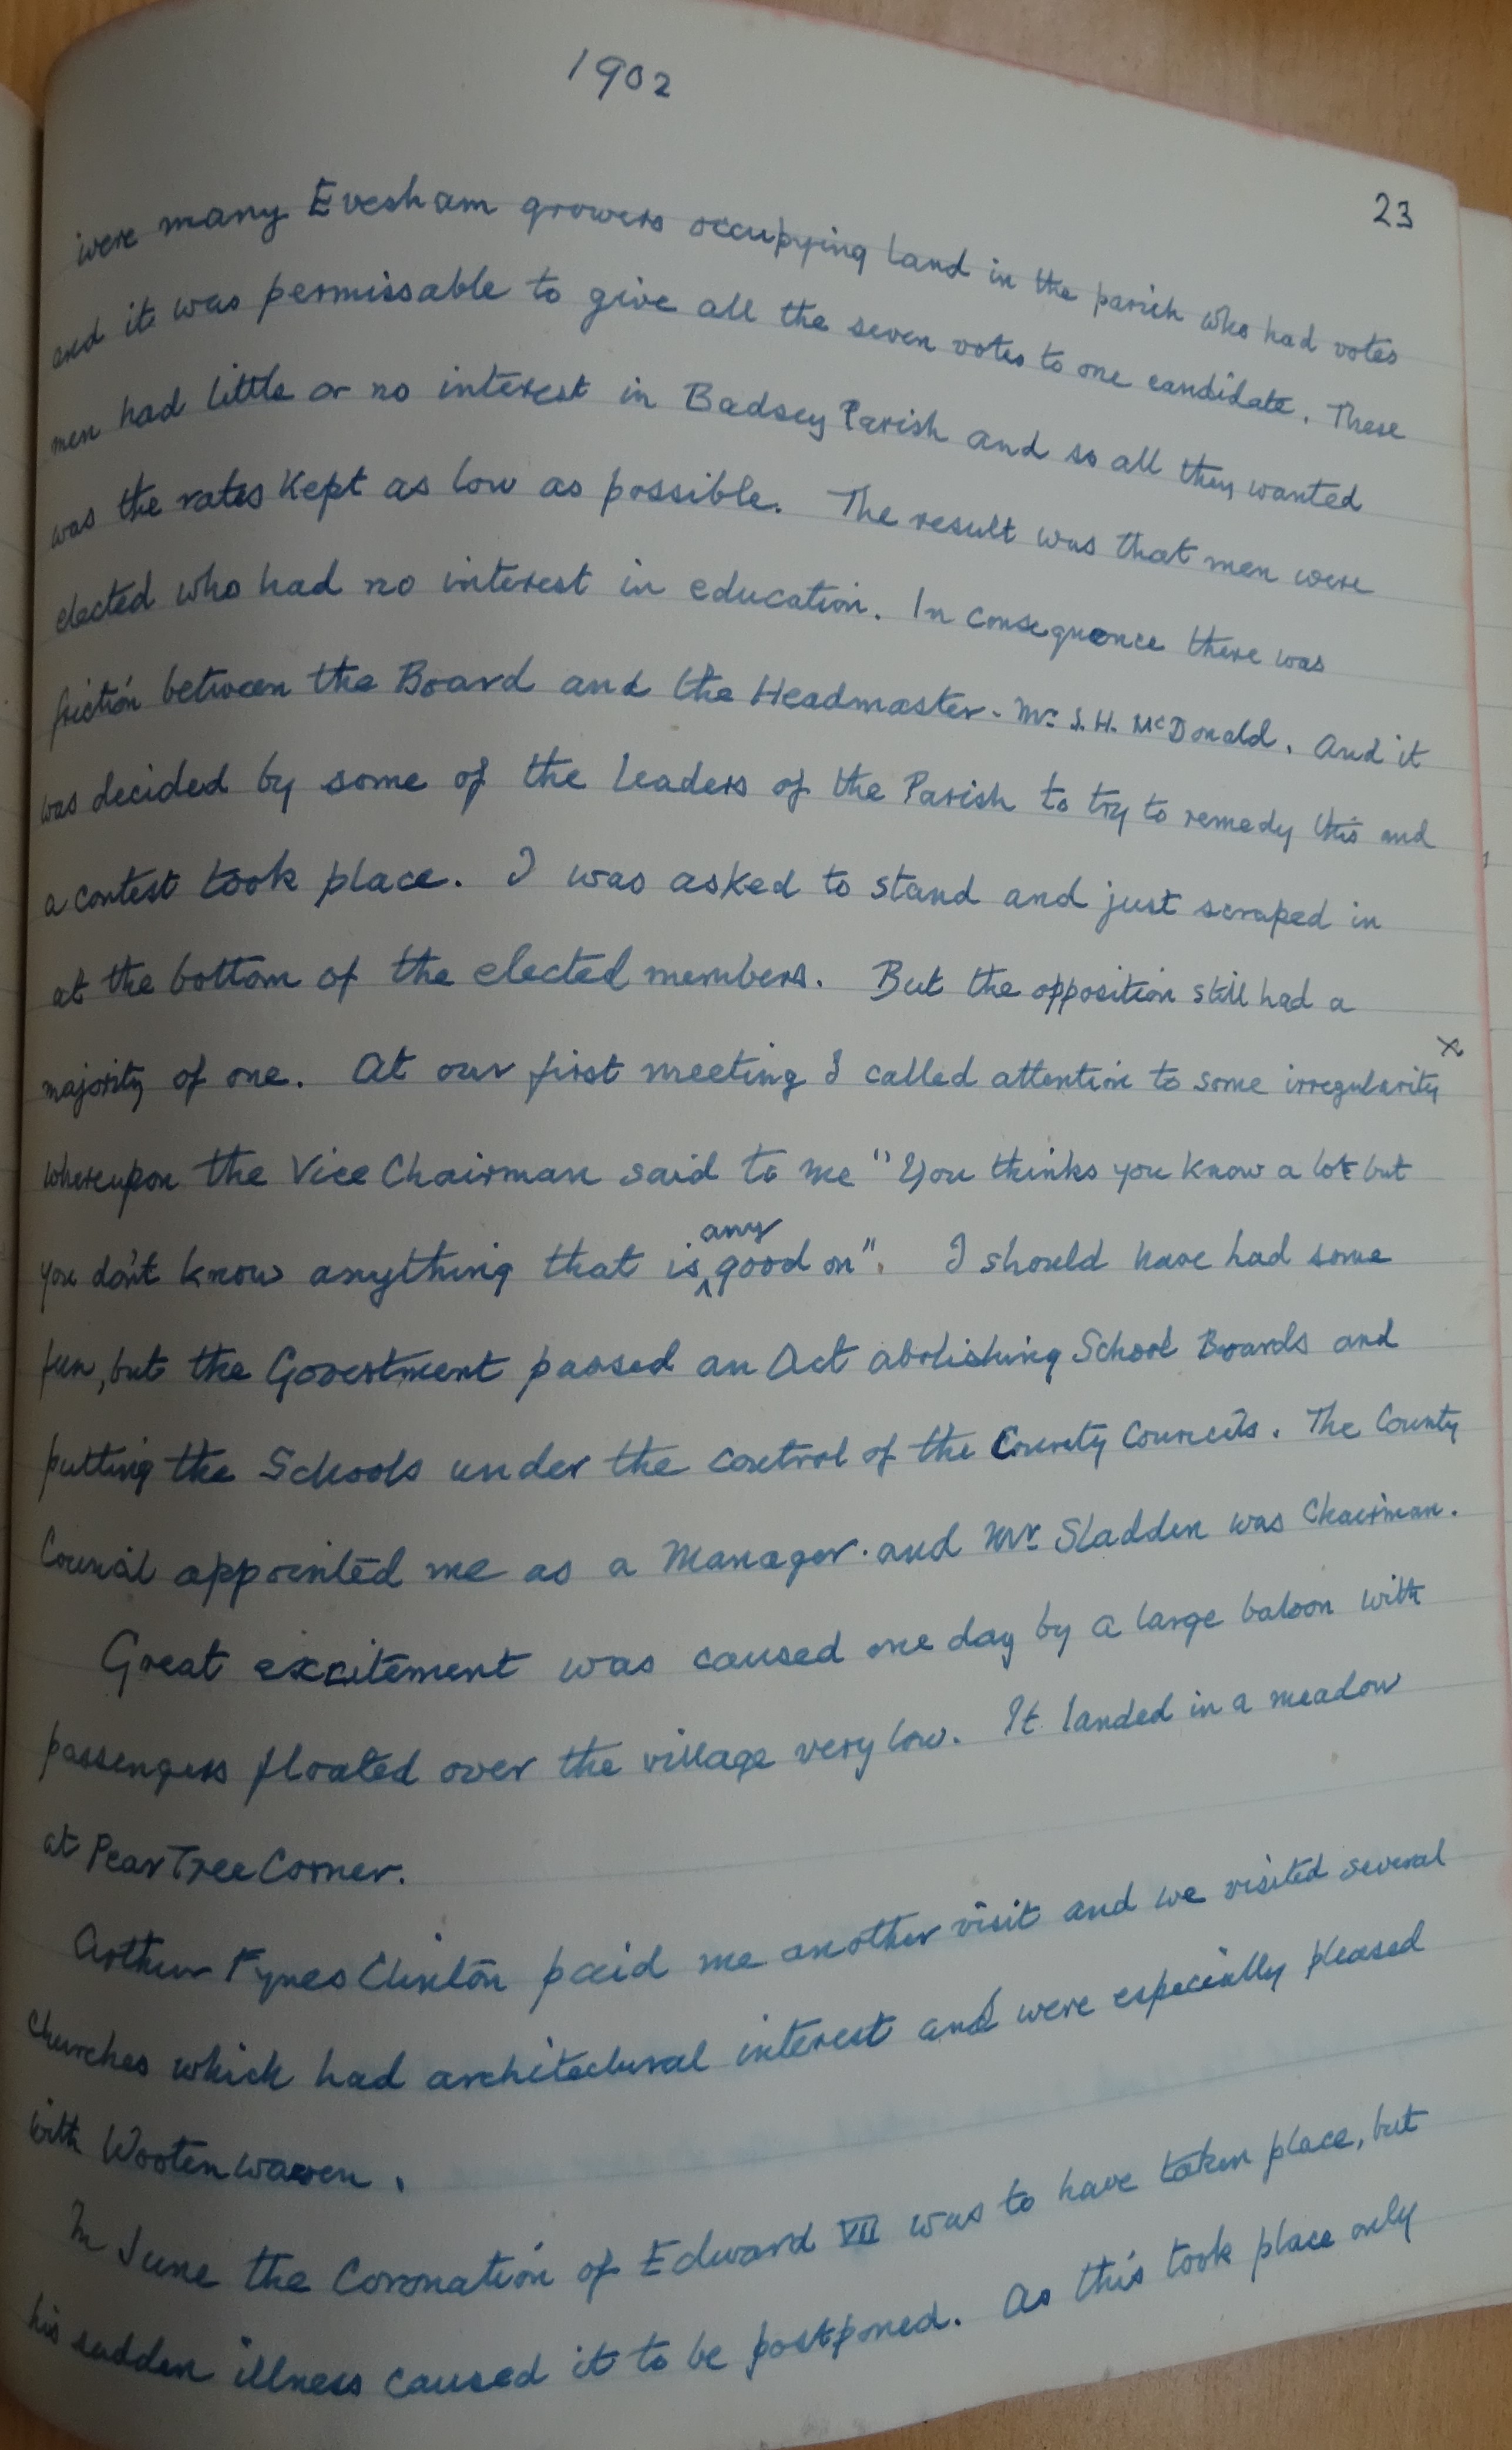 1902
23
were many Evesham growers occupying land in the parish who had votes
and it was permissable to give all the seven votes to one candidate. These
men had little or no interest in Badsey Parish and so all they wanted
was the rates kept as low as possible. The result was that men were
elected who had no interest in education. In consequence there was
friction between the Board and the Headmaster - Mr. S.H. McDonald. And it
was decided by some of the leaders of the Parish to try to remedy this and
a contest took place. I was asked to stand and just scraped in
at the bottom of the elected members. But the opposition still had a
majority of one. At our first meeting I called attention to some irregularity x
whereupon the Vice Chairman said to me "You thinks you know a lot but
you don't know anything that is any good on". I should have had some
fun, but the Government passed an Act abolishing School Boards and
putting the Schools under the control of the County Councils. The County
Council appointed me as a Manager. and Mr. Sladden was Chairman.
Great excitement was caused one day by a large baloon with
passengers floated over the village very low. It landed in a meadow
at Pear Tree Corner.
Arthur Fynes Clinton paid me another visit and we visited several
Churches which had architectural interest and were especially pleased
with Wooten waven.
In June the Coronation of Edward VII was to have taken place, but
his sudden illness caused it to be postponed. As this took place only